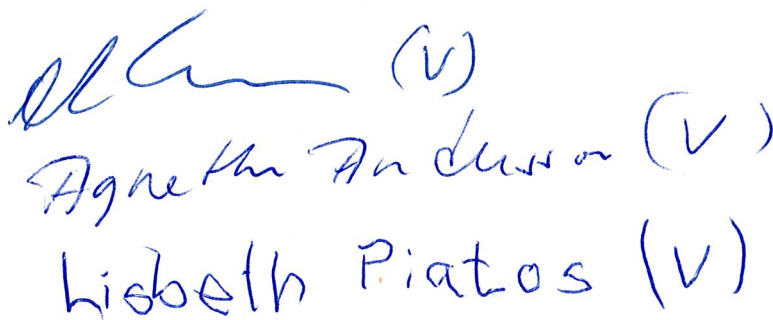 (V)
Agnetha Andersson (V)
Lisbeth Piatos (V)